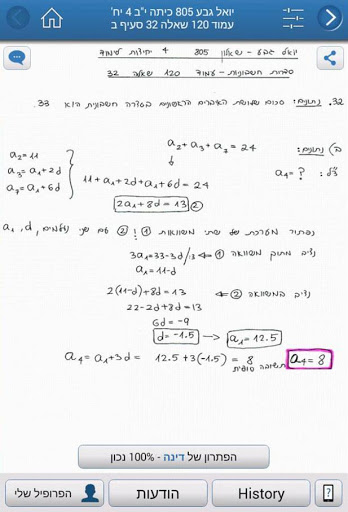 יואל גבע 805 כיתה י"ב 4 יח'
עמוד 120 שאלה 32 סעיף ב
יואל גבע - שאלון 805 4 יחידות לימוד
סדרות חשבוניות - עמוד 120 שאלה 32
32. נתונים: סכום שלושת האיברים הראשונים בסדרה חשבונית הוא 33.
ב) נתונים: a₂ + a₃ + a₇ = 24
צ"ל: a₄ = ?
a₂ = 11
a₃ = a₁ + 2d
a₇ = a₁ + 6d
11 + a₁ + 2d + a₁ + 6d = 24
2a₁ + 8d = 13 ②
נפתור מערכת של שתי משוואות ① ו ② עם שני נעלמים a₁, d
נציב מתוך משוואה ① ⇐ 3a₁ = 33 - 3d /:3
a₁ = 11 - d
נציב במשוואה ② ⇐ 2(11-d) + 8d = 13
22 - 2d + 8d = 13
6d = -9
d = -1.5 → a₁ = 12.5
a₄ = a₁ + 3d = 12.5 + 3(-1.5) = 8 a₄ = 8
תשובה סופית
הפתרון של דינה - 100% נכון
הפרופיל שלי
הודעות
History